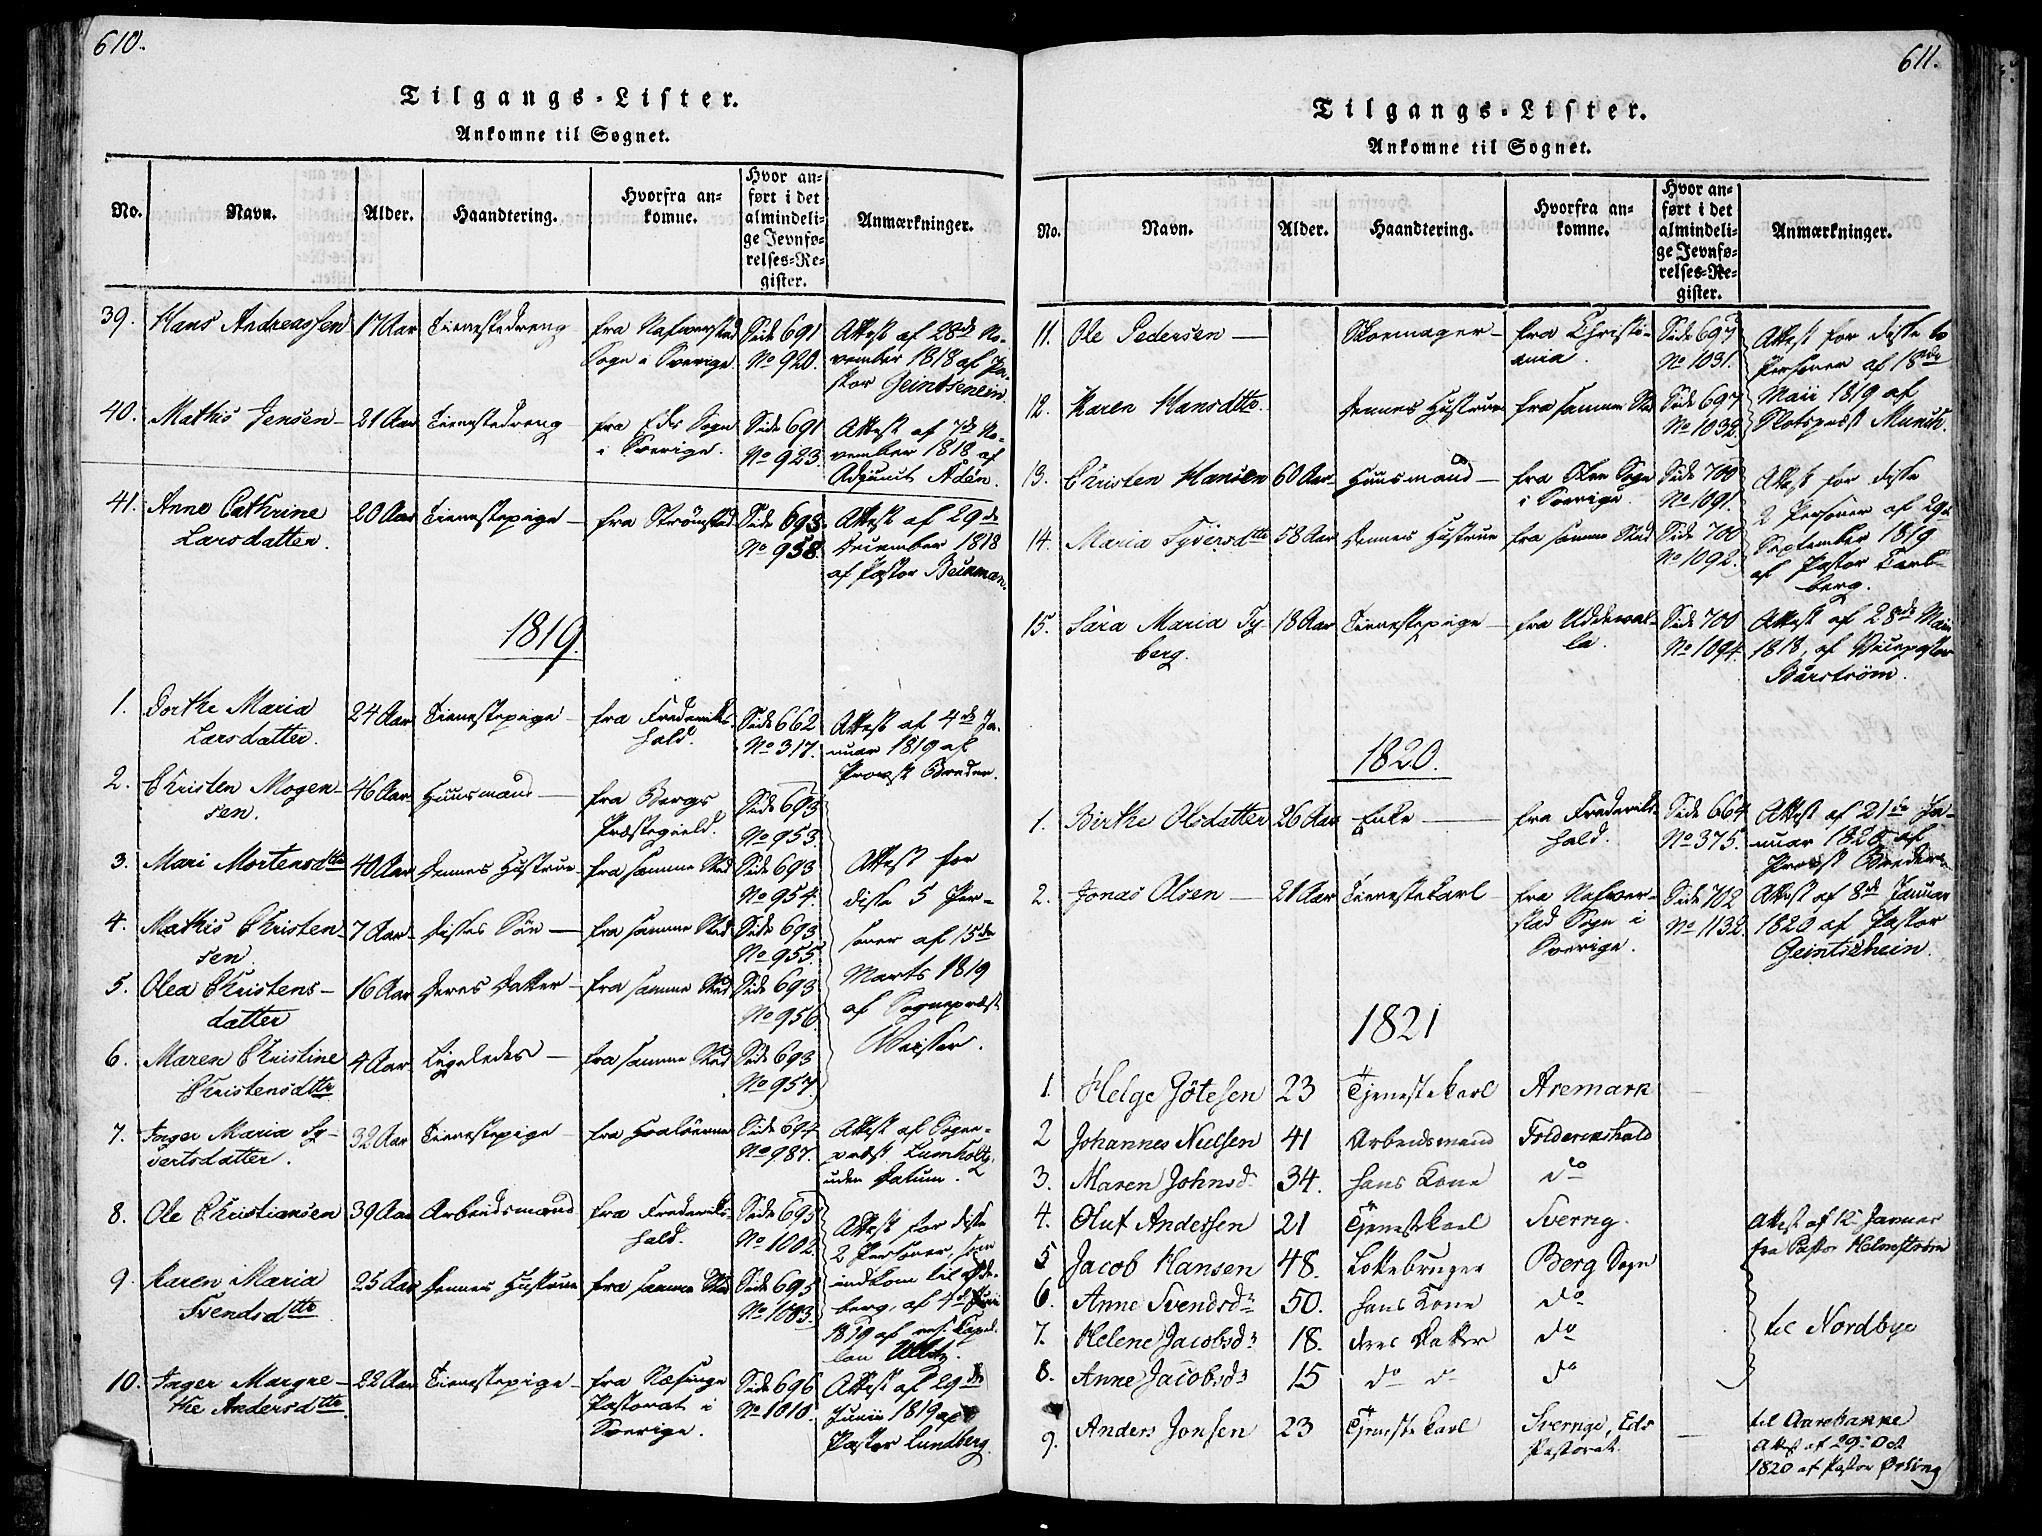 610.
Tilgangs-Lister.
Ankomne til Sognet.
No. Navn. Alder. Haandtering. Hvorfra an= komne. Hvor an= ført i det almindeli= ge Jevnfø= relses=Re= gister. Anmærkninger.
39. Hans Andreassen 17 Aar Tienestedreng fra Nafverstad Side 691 Attest af 28de No-
Sogn i Sverige No 920. vember 1818 af Pa-
stor
40. Mathis Jensen 21 Aar Tienestedreng fra Eds Sogn Side 691 Attest af 7de No-
i Sverige. No 923. vember 1818 af
Adjunct Adèn.
41. Anne Cathrine 20 Aar Tienestepige fra Strømstad Side 693 Attest af 29de
Larsdatter. No 958 December 1818
af Pastor Beckman.
1819.
1. Dorthe Maria 24 Aar Tienestepige fra Frederiks- Side 662 Attest af 4de Ja-
Larsdatter. hald. No 317. nuar 1819 af
Provst Breder.
2. Christen Mogen- 46 Aar Huusmand fra Bergs Side 693
sen. Præstegield. No 953.
3. Mari Mortensdttr 40 Aar Dennes Hustrue fra samme Sted Side 693 Attest for
No 954. disse 5 Per-
4. Mathis Christen- 7 Aar Disses Søn fra samme Sted Side 693 soner af 15de
sen. No 955. Marts 1819
5. Olea Christens- 16 Aar Deres Datter fra samme Sted Side 693 af Sognepræst
datter No 956
6. Maren Christine 4 Aar Ligeledes fra samme Sted Side 693
Christensdttr No 957.
7. Inger Maria Sy- 32 Aar Tienestepige fra Hvaløerne Side 694 Attest af Sogne-
vertsdatter. No 987. præst Lumholtz,
uden Datum.
8. Ole Christiansen 39 Aar Arbeidsmand fra Frederiks- Side 695 Attest for disse
hald. No 1002. 2 Personer, som
9. Karen Maria 25 Aar Dennes Hustrue fra samme Sted Side 695 indkom til
Svendsdttr No 1003. berg, af 4de
1819 af res. Capel-
lan
10. Inger Margre- 22 Aar Tienestepige fra Næsinge Side 696 Attest af 29de
the Andersdttr Pastorat i No 1010. Junii 1819 af
Sverige. Pastor Lundberg.
611.
Tilgangs-Lister.
Ankomne til Sognet.
No. Navn. Alder. Haandtering. Hvorfra an= komne. Hvor an= ført i det almindeli= ge Jevnfø= relses=Re= gister. Anmærkninger.
11. Ole Pedersen Skoemager fra Christi- Side 697 Attest for disse to
ania. No 1031. Personer af 18de
12. Karen Hansdttr. Dennes Hustrue fra samme Sted Side 697 Maii 1819 af
No 1032. Slotspræst Munch.
13. Christen Hansen 60 Aar Huusmand fra Sogn Side 700 Attest for disse
i Sverige. No 1091. 2 Personer af 29de
14. Maria Syversdttr 58 Aar Dennes Hustrue fra samme Sted Side 700 September 1819
No 1092. af Pastor Carl-
berg.
15. Sara Maria Ty- 18 Aar Tienestepige fra Uddeval- Side 700 Attest af 28de Maii
berg. la. No 1094. 1818, af Vicepastor
Barstrøm.
1820.
1. Birthe Olsdatter 26 Aar Enke fra Frederiks- Side 664 Attest af 21de Ja-
hald. No 375. nuar 1820 af
Provst Breder.
2. Jonas Olsen 21 Aar Tienestekarl fra Nafver- Side 702 Attest af 8de Januar
stad Sogn i No 1132. 1820 af Pastor
Sverige. Geintschein.
1821
1. Helge Jötesen 23 Tjenestekarl Aremark
2 Johannes Nielsen 41 Arbeidsmand Friderichshald
3. Maren Johnsd. 34. hans Kone do
4. Oluf Andersen 21 Tjenestkarl Sverrig. Attest af 12 Januar
fra Pastor Helmstrøm
5 Jacob Hansen 48. Berg Sogn
6. Anne Svendsdr 50. hans Kone do
7. Helene Jacobsdr 18. deres Datter do til Nordbye
8. Anne Jacobsdr 15 do do do
9. Anders Jonsen 23 Tjenestekarl Sverrige, Eds til Aarebakke
Pastorat. Attest af 29 Oct
1820 af Pastor